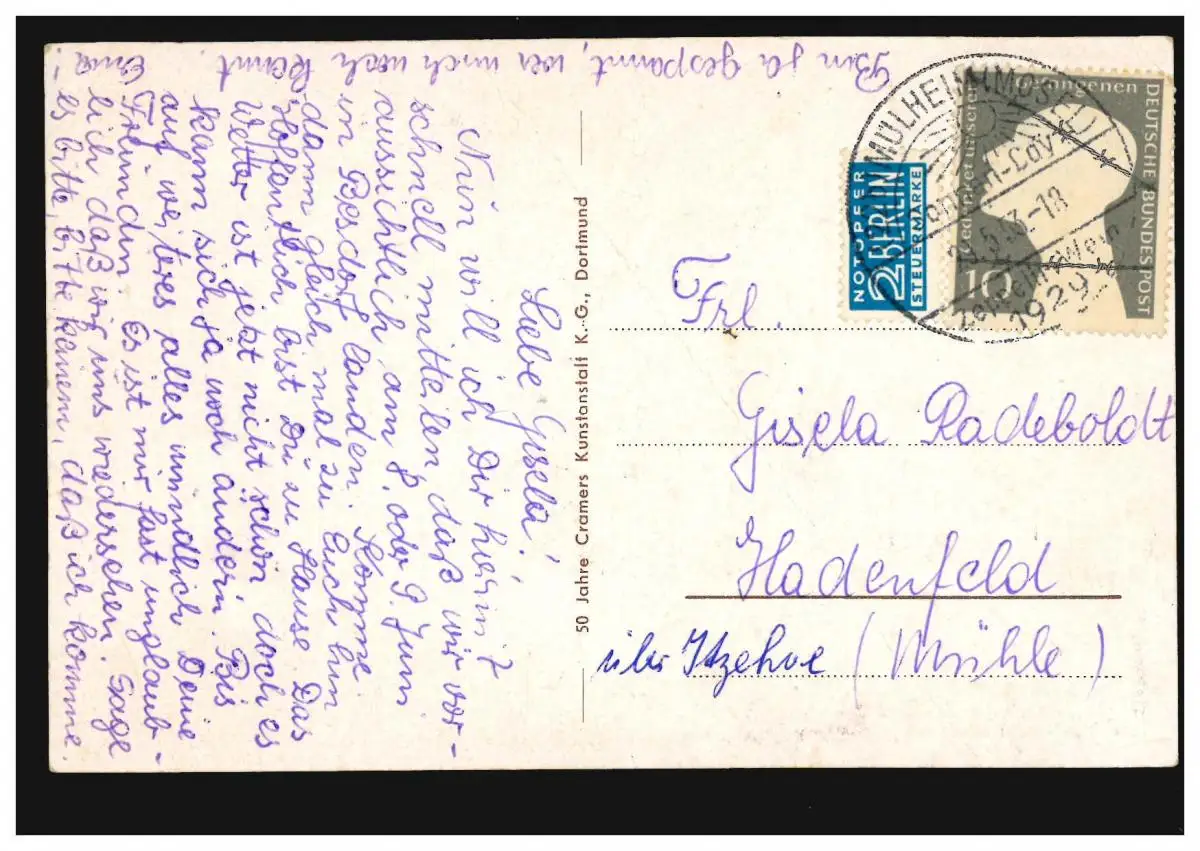 Liebe Gisela!
Nun will ich Dir hiermit
schnell mitteilen daß wir vor-
aussichtlich am 8. oder 9. Juni
in Besdorf landen. Komme
dann gleich mal zu Euch hin
Hoffentlich bist Du zu Hause. Das
Wetter ist jetzt nicht schön doch es
kann sich ja noch ändern. Bis
auf weiteres alles mündlich Deine
Freundin. Es ist mir fast unglaub-
lich daß wir uns wiedersehen. Sage
es bitte, bitte keinem, daß ich komme.
Bin ja gespannt, wer mich noch kennt
50 Jahre Cramers Kunstanstalt K.-G., Dortmund
Frl.
Gisela Radeboldt
Hadenfeld
über Itzehoe (Mühle)
NOTOPFER
2 BERLIN
STEUERMARKE
Gedenket unserer Gefangenen
DEUTSCHE BUNDESPOST
10
MÜLHEIM (MOSEL)
5.53.-18
1929